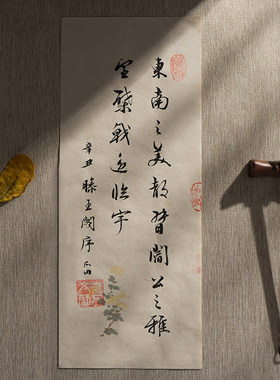 東南之美都督閻公之雅
望棨戟遥临宇
辛丑滕王閣序